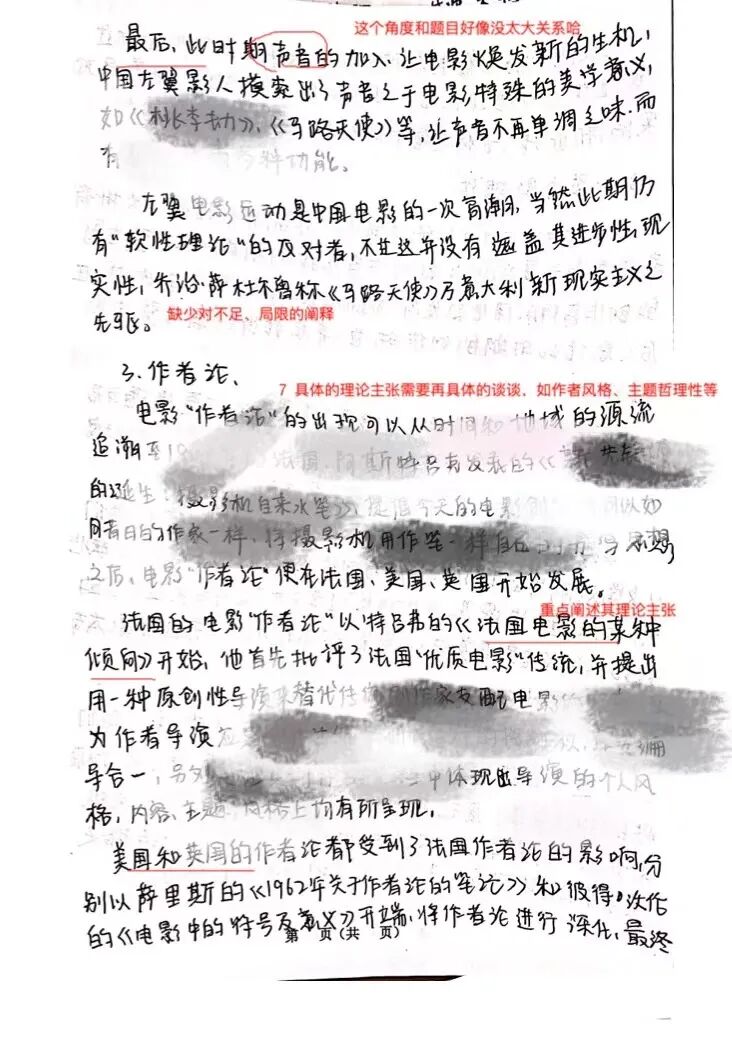 这个角度和题目好像没太大关系哈
最后,此时期声音的加入,让电影焕发新的生机,
中国左翼影人摸索出了声音之于电影特殊的美学意义,
如《桃李劫》、《马路天使》等,让声音不再单调乏味.而
有 特功能。
左翼电影运动是中国电影的一次高潮,当然此期仍
有“软性理论”的反对者,不过这并没有遮盖其进步性,现
实性,乔治·萨杜尔曾称《马路天使》乃意大利新现实主义之
先驱。
缺少对不足、局限的阐释
3.作者论、
7 具体的理论主张需要再具体的谈谈,如作者风格、主题哲理性等
电影“作者论”的出现可以从时间和地域的源流
追溯至 法国,阿斯特吕克发表的《
的诞生:摄影机自来水笔》,提倡今天的电影创 可以如
同昔日的作家一样,将摄影机用作笔一样自 思想
之后,电影“作者论”便在法国、美国、英国开始发展。
重点阐述其理论主张
法国的电影“作者论”以特吕弗的《法国电影的某种
倾向》开始,他首先批评了法国“优质电影”传统,并提出
用一种原创性导演来替代传 作家支配电影
为作者导演应 编
导合一,另 中体现出导演的个人风
格,内容、主题、风格上均有所呈现.
美国和英国的作者论都受到了法国作者论的影响,分
别以萨里斯的《1962年关于作者论的笔记》和彼得·沃伦
的《电影中的符号及意义》开端,将作者论进行深化,最终
第 页(共 页)